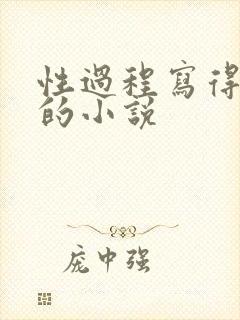 性過程寫得
的小說
庞中强